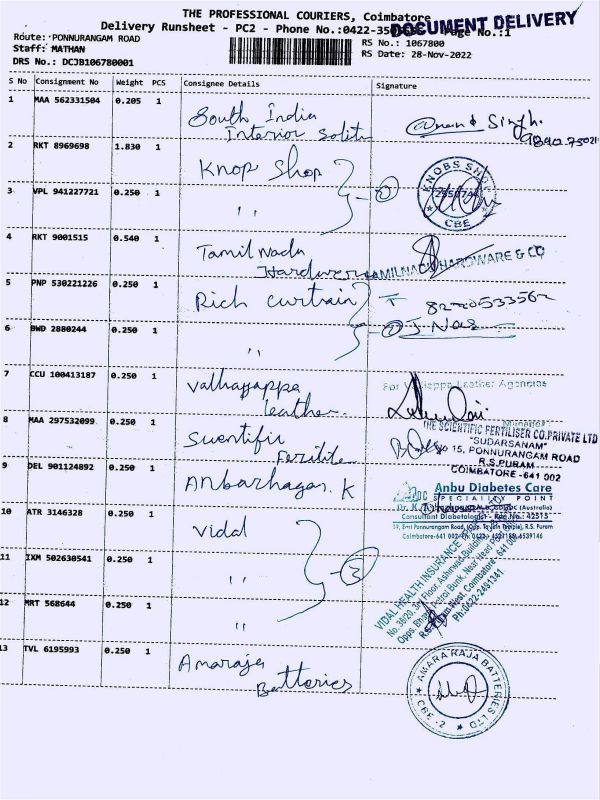 THE PROFESSIONAL COURIERS, Coimbatore
DOCUMENT DELIVERY
Delivery Runsheet - PC2 - Phone No.:0422-350 Page No.:1
Route: PONNURANGAM ROAD
RS No.: 1067800
Staff: MATHAN
RS Date: 28-Nov-2022
DRS No.: DCJB106780001
S No Consignment No Weight PCS Consignee Details Signature
1 MAA 562331504 0.205 1 South India
Interior Solitn
Anand Singh.
2 RKT 8969698 1.830 1 Knop Shop
KNOBS SHOP
CBE
3 VPL 941227721 0.250 1 "
4 RKT 9001515 0.540 1 Tamil Nadu
Hardwere
TAMILNADU HARDWARE & CO
5 PNP 530221226 0.250 1 Rich curtrain
6 BWD 2880244 0.250 1 "
7 CCU 100413187 0.250 1 Valhayappa
leather
Leather Agencies
8 MAA 297532099 0.250 1 Suentific
Ferilite
THE SCIENTIFIC FERTILISER CO.PRIVATE LTD
"SUDARSANAM"
15, PONNURANGAM ROAD
R.S.PURAM
COIMBATORE - 641 002
9 DEL 901124892 0.250 1 Anbarhagan. K
Anbu Diabetes Care
SPECIALITY POINT
(Australia)
Consultant Diabetologist - Reg No.: 42313
Ponnurangam Road, (Opp. To Jain Temple), R.S. Puram
10 ATR 3146328 0.250 1 Vidal
11 IXM 502630541 0.250 1 "
12 MRT 568644 0.250 1 "
3
VIDAL HEALTH INSURANCE
No. 36/20, 3rd Floor, Ashirwad Building
Opps. Bharat Petrol Bunk, Near Head Post
R.S. Puram West, Coimbatore - 641 002
Ph:0422-2491341
13 TVL 6195993 0.250 1 Amaraja
Batteries
AMARA RAJA BATTERIES LTD
CBE - 2